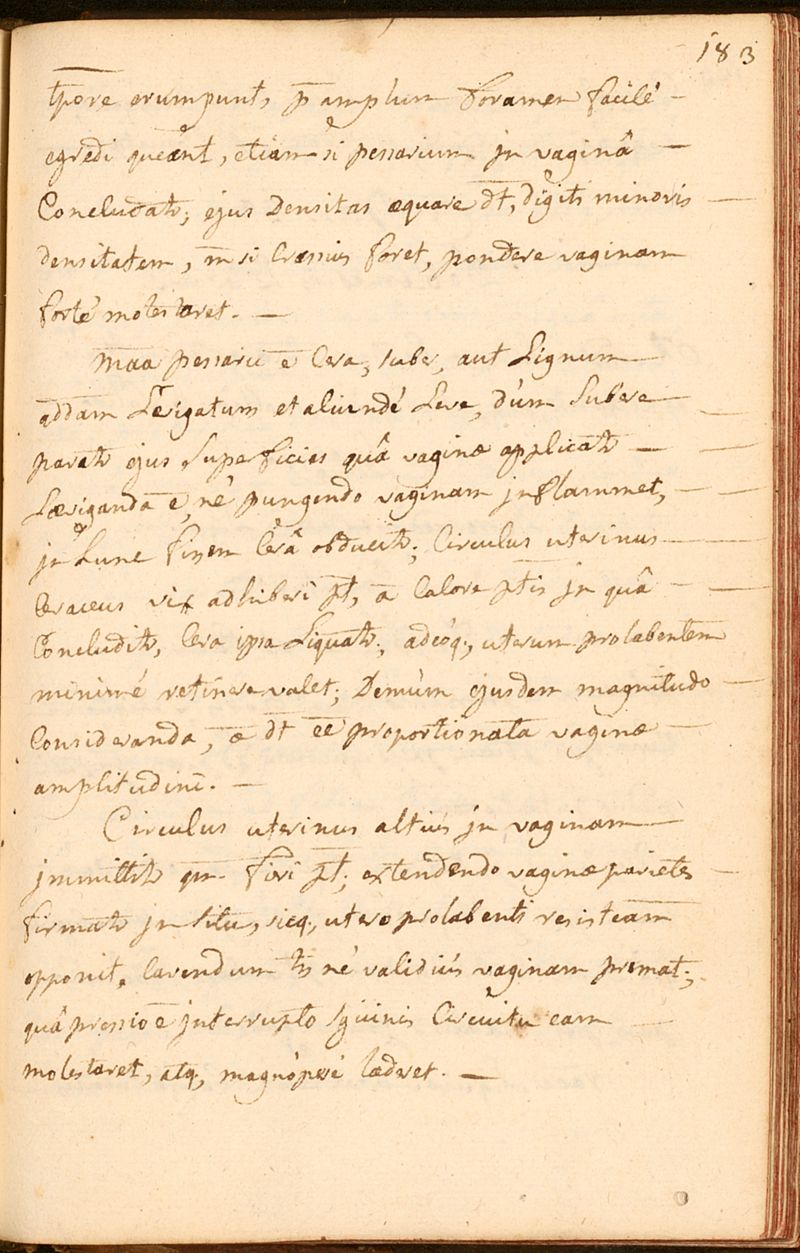 183
tpore erumpunt, p amplum foramen facilé
egredi queant, etiam si pessarium jn vaginâ
Concludatr; ejus Densitas æquare dt, digiti minoris
densitatem, nn si Crassius foret, pondere vaginam
forté molestaret.
Maa pessarii e Cera, suber, aut Lignum
addam Lævigatum et aliundé Leve, dùm Subere
paratr ejus Superficies quâ vaginæ applicatr
Læviganda e, né pungendo vaginam jnflammet,
jn hunc finem Cerâ obducitr; Circulus uterinus
Ceraceus vix adhiberi pt, a Calore ptis jn quâ
Concluditr, Cera ipsa Liquatr, adeóq;, uterum prolabentem
minimé retinere valet; Demùm ejusdem magnitudo
Consideranda, æ dt ee proportionata vaginæ
amplitudini.
Circulus uterinus altiùs jn vaginam
jmmittitr qm fieri pt; extendendo vaginæ parietes
firmatr jn situ, sicq;, utero prolabenti resisteam
opponit, Cavendum tn né validiús vaginam premat;
quâ pressioe jnterrupto sguinis Circuitu eam
molestaret, atq;, magnóperé læderet.